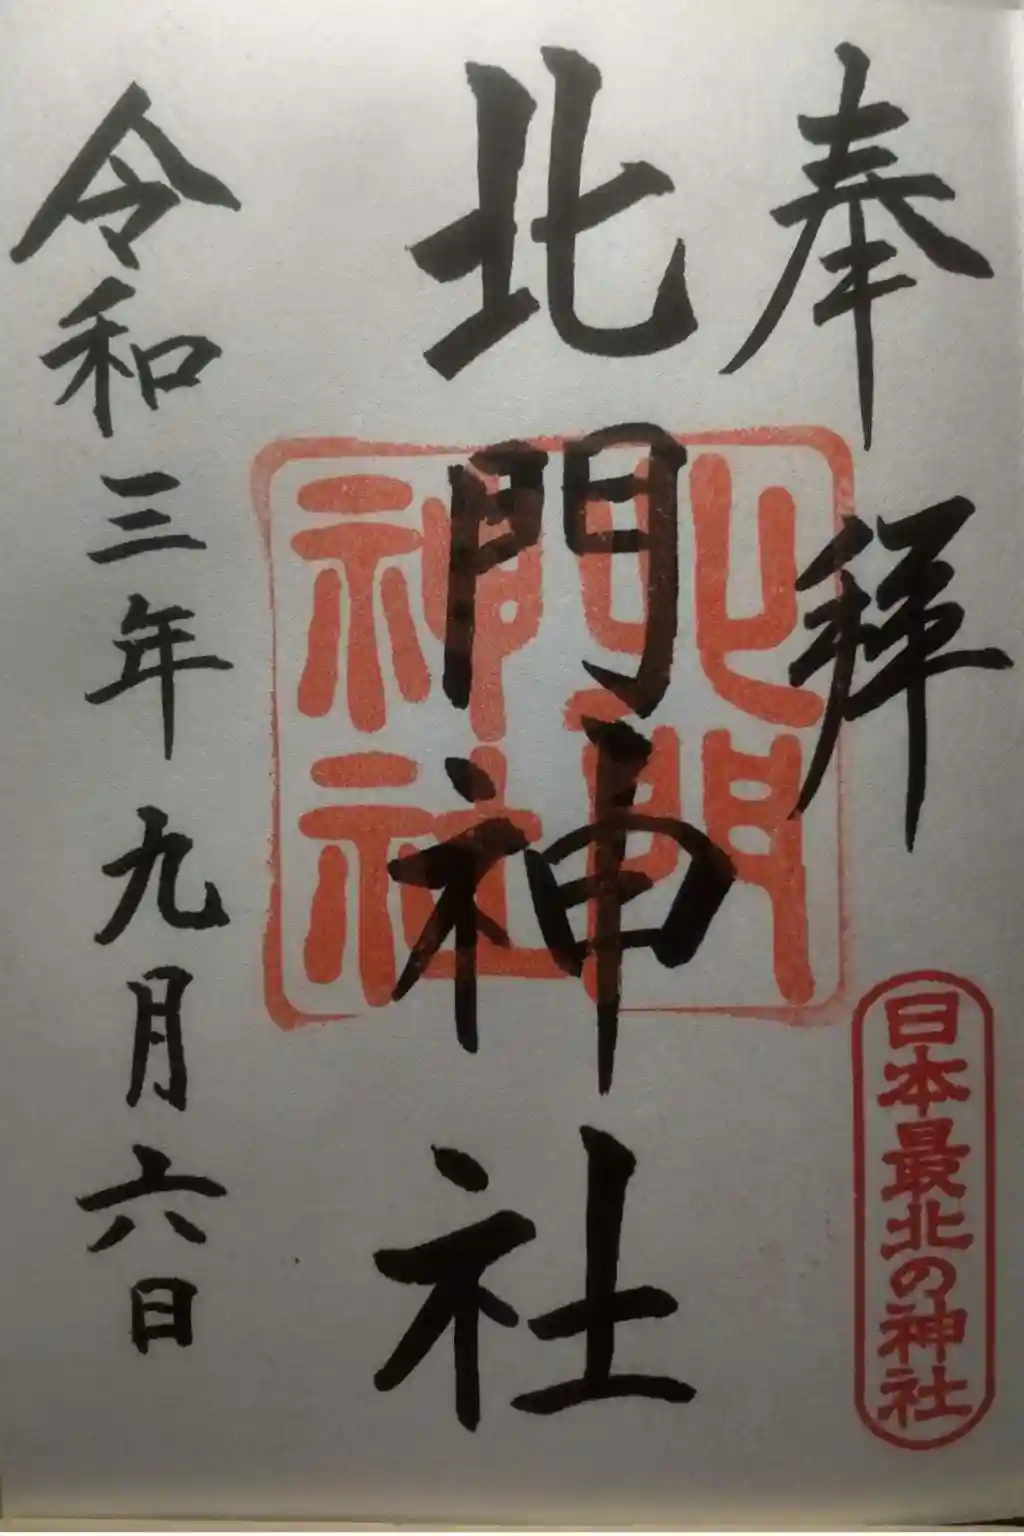 奉拝
日本最北の神社
北門神社
北門
神社
令和三年九月六日